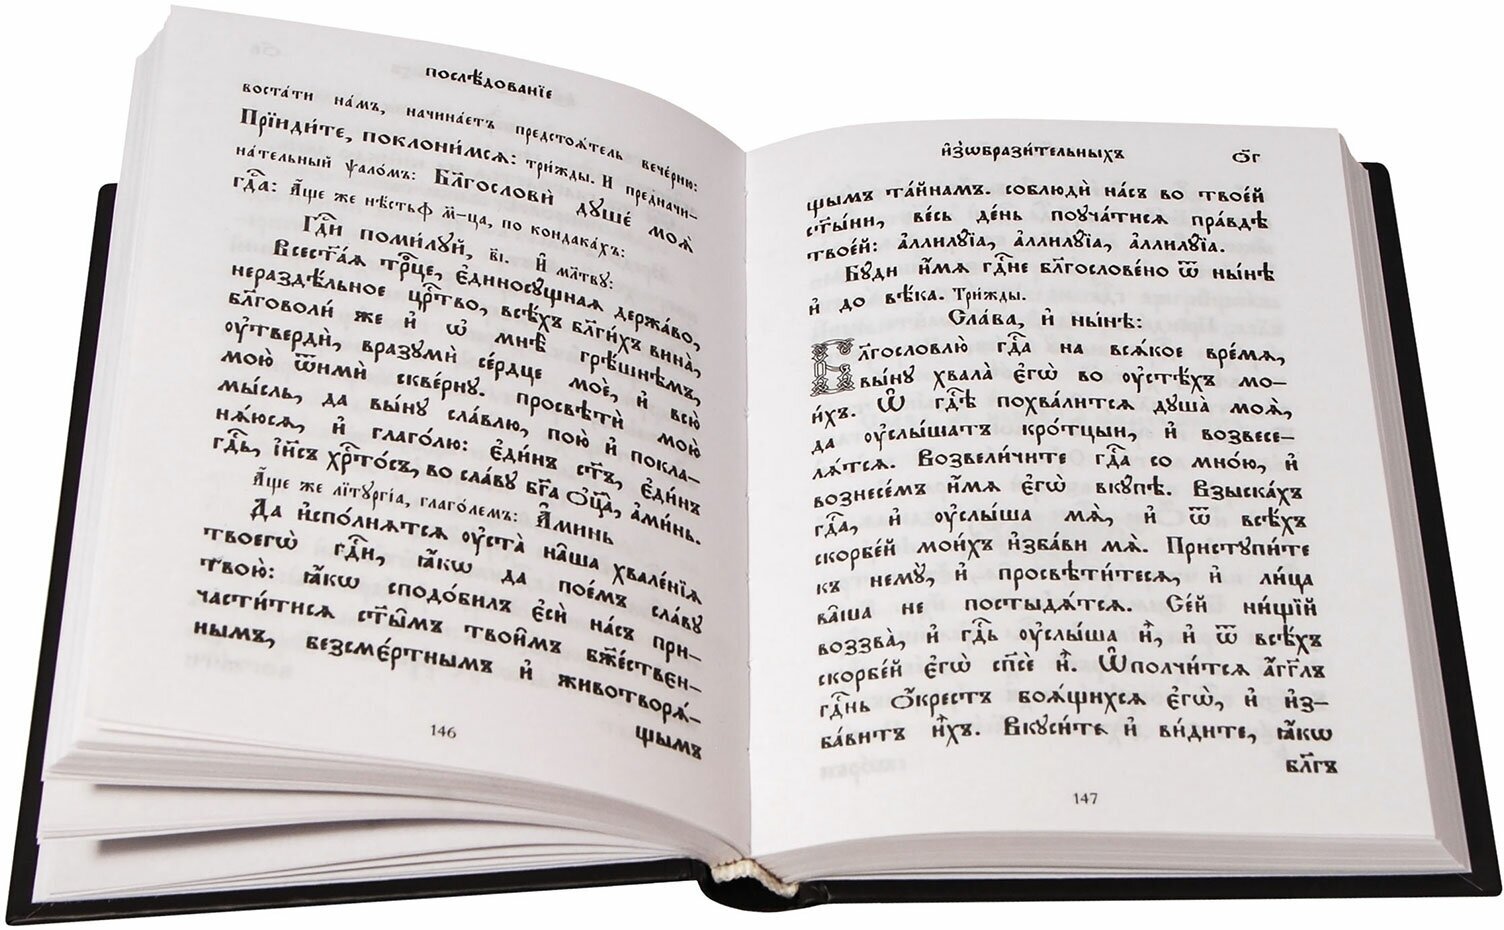 послѣ́дованїе
воста́ти на́мъ, начина́етъ предстоѧ́тель вече́рню:
Прїиди́те, поклони́мсѧ: три́жды. И предначи-
на́тельный ѱало́мъ: Бл҃гословѝ дꙋшѐ моѧ̀
гд҇а: А҆́ще же нѣ́сть ф҃ м҃-ца, по кондака́хъ:
Гд҇и поми́лꙋй, в҃і. И҆ мл҃твꙋ:
Всест҃а́ѧ трⷪ҇це, є҆диносꙋ́щнаѧ держа́во,
нераздѣ́льное црⷭ҇тво, всѣ́хъ бл҃ги́хъ вина̀,
бл҃говоли́ же и҆ ѡ҆ мнѣ̀ грѣ́шнѣмъ,
ᲂу҆твердѝ, вразꙋмѝ се́рдце моѐ, и҆ всю̀
мою̀ ѿимѝ скве́рнꙋ. просвѣтѝ мою̀
мы́сль, да вы́нꙋ сла́влю, пою̀ и҆ покла-
нѧ́юсѧ, и҆ глаго́лю: є҆ди́нъ ст҃ъ, є҆ди́нъ
гд҇ь, і҆и҃съ хрⷭ҇то́съ, во сла́вꙋ бг҃а ѻ҆ц҃а̀, а҆ми́нь.
А҆́ще же лїтꙋргі́а, глаго́лемъ: А҆ми́нь
Да и҆спо́лнѧтсѧ ᲂу҆ста̀ на̑ша хвале́нїѧ
твоегѡ̀ гд҇и, ꙗ҆́кѡ да пое́мъ сла́вꙋ
твою̀: ꙗ҆́кѡ сподо́билъ є҆сѝ на́съ при-
части́тисѧ ст҃ы̑мъ твои̑мъ бж҃е́ствен-
нымъ, безсме́ртнымъ и҆ животворѧ́-
щымъ
146
и҆зѡбрази́тельныхъ ѻ҃г
щымъ та́йнамъ. соблюдѝ на́съ во твое́й
ст҃ы́ни, ве́сь де́нь поꙋча́тисѧ пра́вдѣ
твое́й: а҆ллилꙋ́їа, а҆ллилꙋ́їа, а҆ллилꙋ́їа.
Бꙋ́ди и҆́мѧ гд҇не бл҃гослове́но ѿ ны́нѣ
и҆ до вѣ́ка. Три́жды.
Сла́ва, и҆ ны́нѣ:
Бл҃гословлю̀ гд҇а на всѧ́кое вре́мѧ,
вы́нꙋ хвала̀ є҆гѡ̀ во ᲂу҆стѣ́хъ мо-
и́хъ. Ѡ҆ гд҇ѣ похва́литсѧ дꙋша̀ моѧ̀,
да ᲂу҆слы́шатъ кро́тцыи, и҆ возвесе-
лѧ́тсѧ. Возвели́чите гд҇а со мно́ю, и҆
вознесе́мъ и҆́мѧ є҆гѡ̀ вкꙋ́пѣ. Взыска́хъ
гд҇а, и҆ ᲂу҆слы́ша мѧ̀, и҆ ѿ всѣ́хъ
скорбе́й мои́хъ и҆зба́ви мѧ̀. Пристꙋпи́те
къ немꙋ̀, и҆ просвѣти́тесѧ, и҆ ли́ца
ва̑ша не постыдѧ́тсѧ. Се́й ни́щїй
воззва̀, и҆ гд҇ь ᲂу҆слы́ша и҆̀, и҆ ѿ всѣ́хъ
скорбе́й є҆гѡ̀ сп҃сѐ и҆̀. Ѡ҆полчи́тсѧ а҆́гг҃лъ
гд҇нь ѻ҆́крестъ боѧ́щихсѧ є҆гѡ̀, и҆ и҆з-
ба́витъ и҆̀хъ. Вкꙋси́те и҆ ви́дите, ꙗ҆́кѡ
бл҃гъ
147